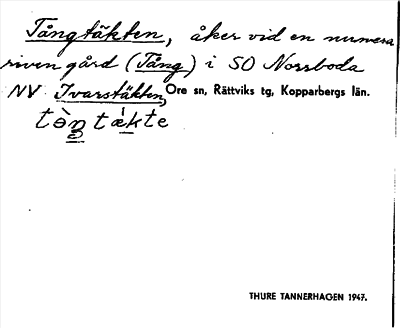 Tångtäkten, åker vid en numera
riven gård (Tång) i SO Norrboda
NV Ivarstäkten, Ore sn, Rättviks tg, Kopparbergs län.
tòŋtækte
THURE TANNERHAGEN 1947.